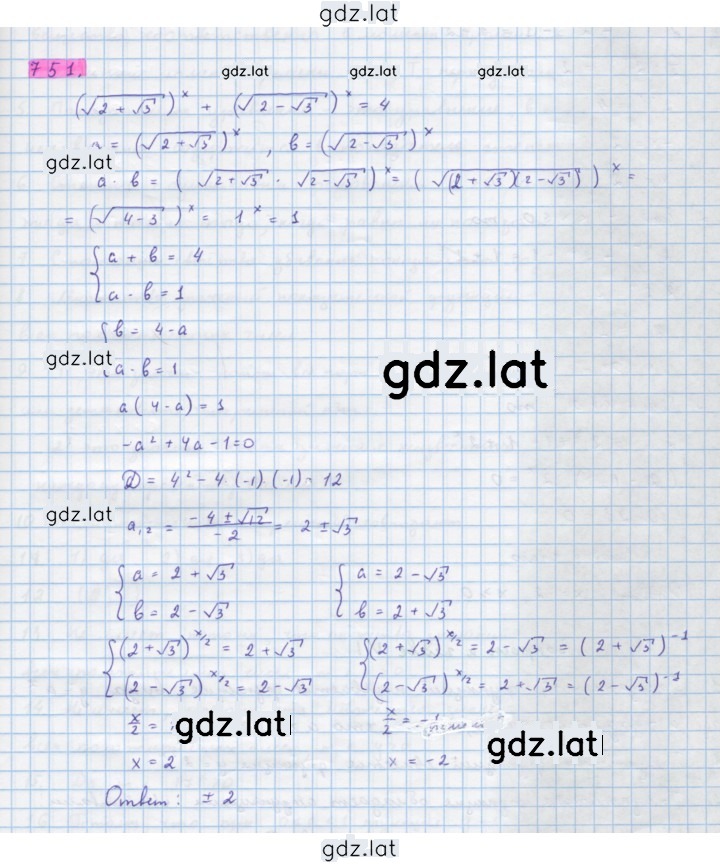 gdz.lat
751.
gdz.lat gdz.lat gdz.lat
(√(2 + √3))^x + (√(2 - √3))^x = 4
a = (√(2 + √3))^x , b = (√(2 - √3))^x
gdz.lat
a · b = (√(2 + √3) · √(2 - √3))^x = (√((2 + √3)(2 - √3)))^x =
= (√(4 - 3))^x = 1^x = 1
{ a + b = 4
a · b = 1
{ b = 4 - a
gdz.lat gdz.lat
a · b = 1
a(4 - a) = 1
-a² + 4a - 1 = 0
D = 4² - 4 · (-1) · (-1) = 12
gdz.lat
a₁,₂ = (-4 ± √12)/(-2) = 2 ± √3
{ a = 2 + √3 { a = 2 - √3
b = 2 - √3 b = 2 + √3
{ (2 + √3)^(x/2) = 2 + √3 { (2 + √3)^(x/2) = 2 - √3 = (2 + √3)^-1
(2 - √3)^(x/2) = 2 - √3 (2 - √3)^(x/2) = 2 + √3 = (2 - √3)^-1
x/2 = x/2 = -1
gdz.lat gdz.lat
x = 2 x = -2
Ответ: ± 2
gdz.lat